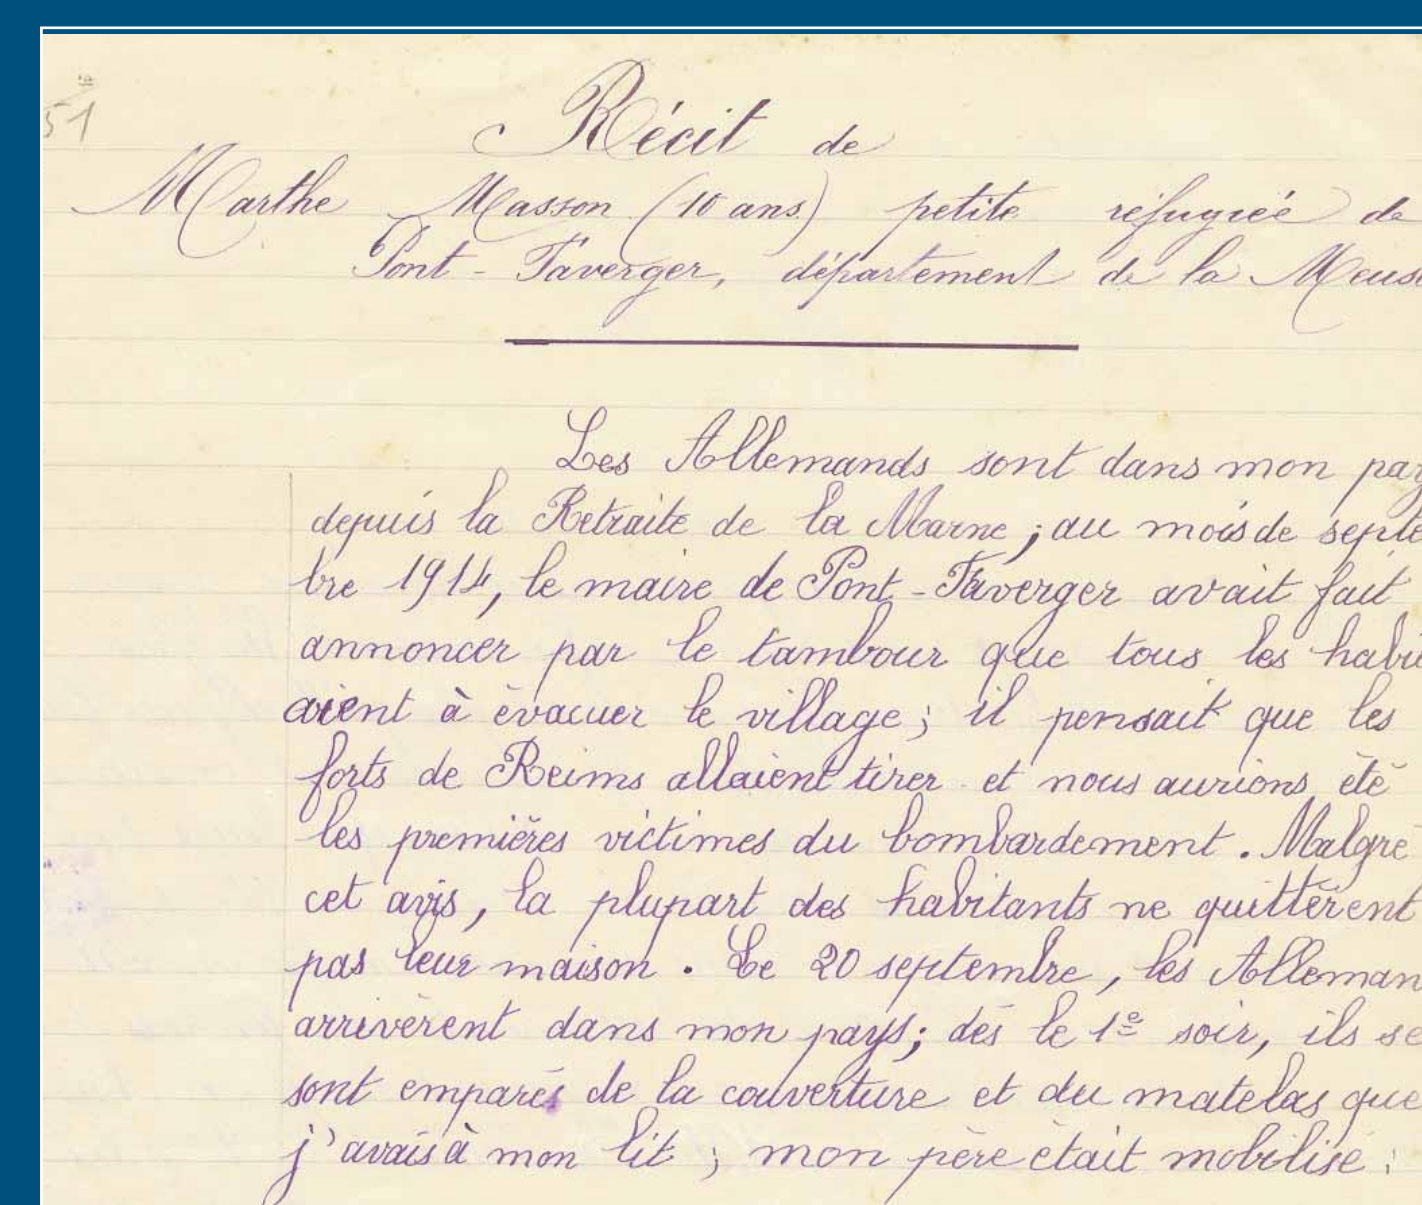 51
Récit de
Marthe Masson (10 ans) petite réfugiée de
Pont-Faverger, département de la Meuse
Les Allemands sont dans mon pay
depuis la Retraite de la Marne ; au mois de septe
bre 1914, le maire de Pont-Faverger avait fait
annoncer par le tambour que tous les habi
aient à évacuer le village ; il pensait que les
forts de Reims allaient tirer et nous aurions été
les premières victimes du bombardement. Malgré
cet avis, la plupart des habitants ne quittèrent
pas leur maison. Le 20 septembre, les Alleman
arrivèrent dans mon pays ; dès le 1e soir, ils se
sont emparés de la couverture et du matelas que
j'avais à mon lit ; mon père était mobilisé :